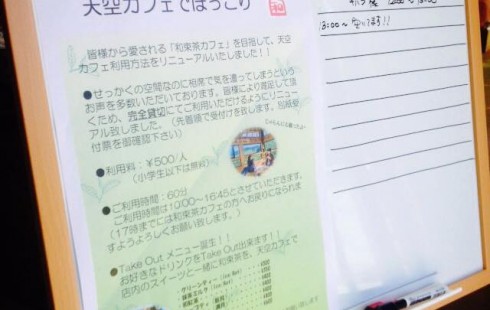 天空カフェでほっこり
皆様から愛される「和束茶カフェ」を目指して、天空
カフェ利用方法をリニューアルいたしました！！
●せっかくの空間なのに相席で気を遣ってしまうという
お声を多数いただいております。皆様により満足して頂
くため、完全貸切にてご利用いただけるようにリニュー
アル致しました。（先着順で受付けを致します。別紙受
付票を御確認下さい）
●利用料：￥500/人
（小学生以下は無料）
●ご利用時間：60分
ご利用時間は10:00～16:45とさせていただきます。
（17時までには和束茶カフェの方へお戻りになられま
すようよろしくお願い致します。）
●Take Out メニュー誕生！！
お好きなドリンクをTake Out出来ます！！
店内のスイーツと一緒に和束茶を、天空カフェで
グリーンティー
13:00～